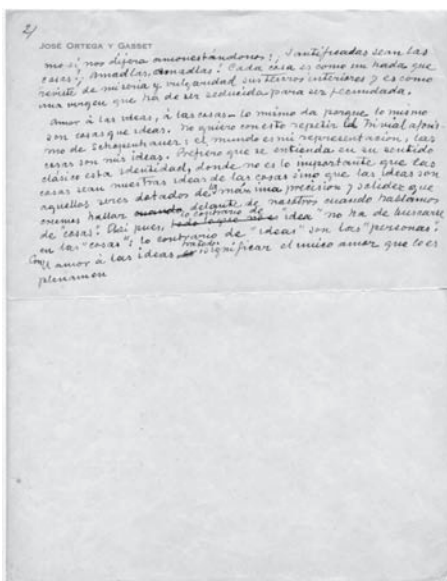 2/
JOSÉ ORTEGA Y GASSET
mo si nos dijera amonestándonos: ¡Santificadas sean las
cosas! ¡Amadlas, amadlas! Cada cosa es como un hada que
reviste de miseria y vulgaridad sus tesoros interiores y es como
una virgen que ha de ser seducida para ser fecundada.
Amor á las ideas, á las cosas — lo mismo da porque lo mismo
son cosas que ideas. No quiero con esto repetir el trivial aforis-
mo de Schopenhauer: el mundo es mi representación, las
cosas son mis ideas. Prefiero que se entienda en su sentido
clásico esta identidad, donde no es lo importante que las
cosas sean nuestras ideas de las cosas sino que las ideas son
aquellos seres dotados de la máxima precisión y solidez que
creemos hallar cuando delante de nosotros cuando hablamos
de "cosas". Así pues, lo contrario de "idea" no ha de buscarse
en las "cosas": lo contrario de "ideas" son las "personas".
Con el amor á las ideas trataba significar el único amor que lo es
plenamen